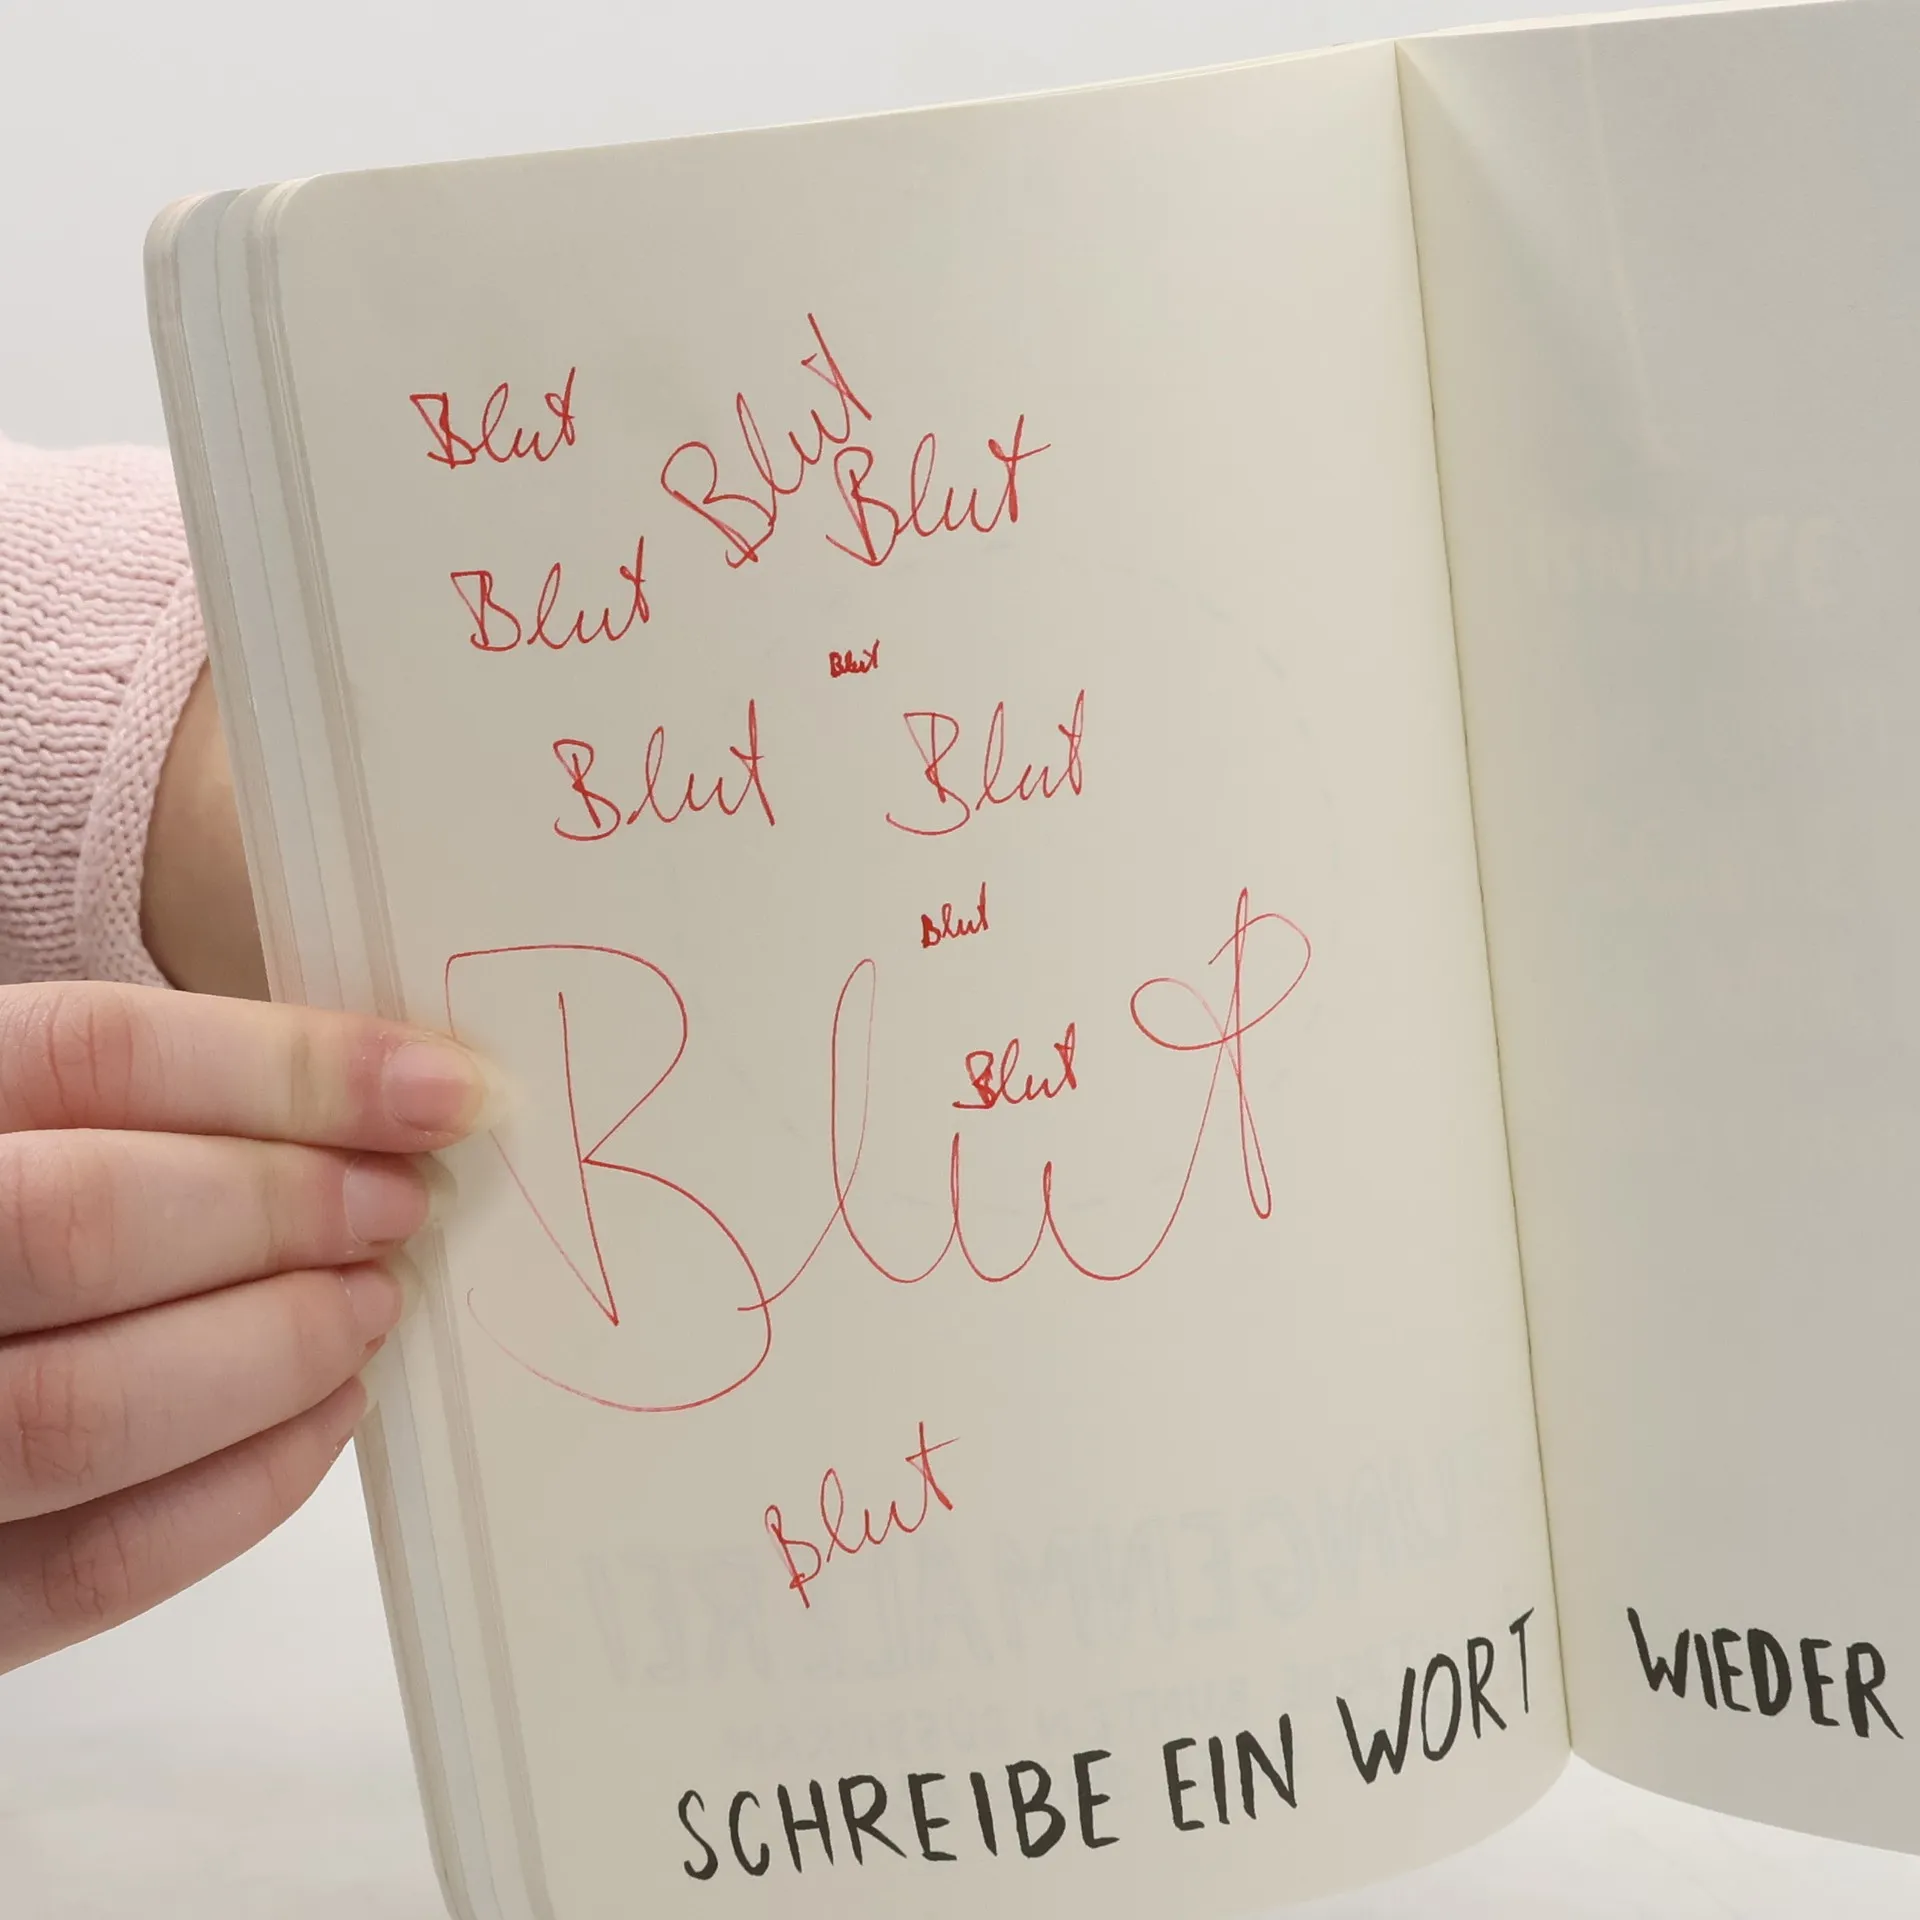 Blut Blut Blut
Blut
Blut
Blut Blut
Blut
Blut
Blut
Blut
SCHREIBE EIN WORT WIEDER